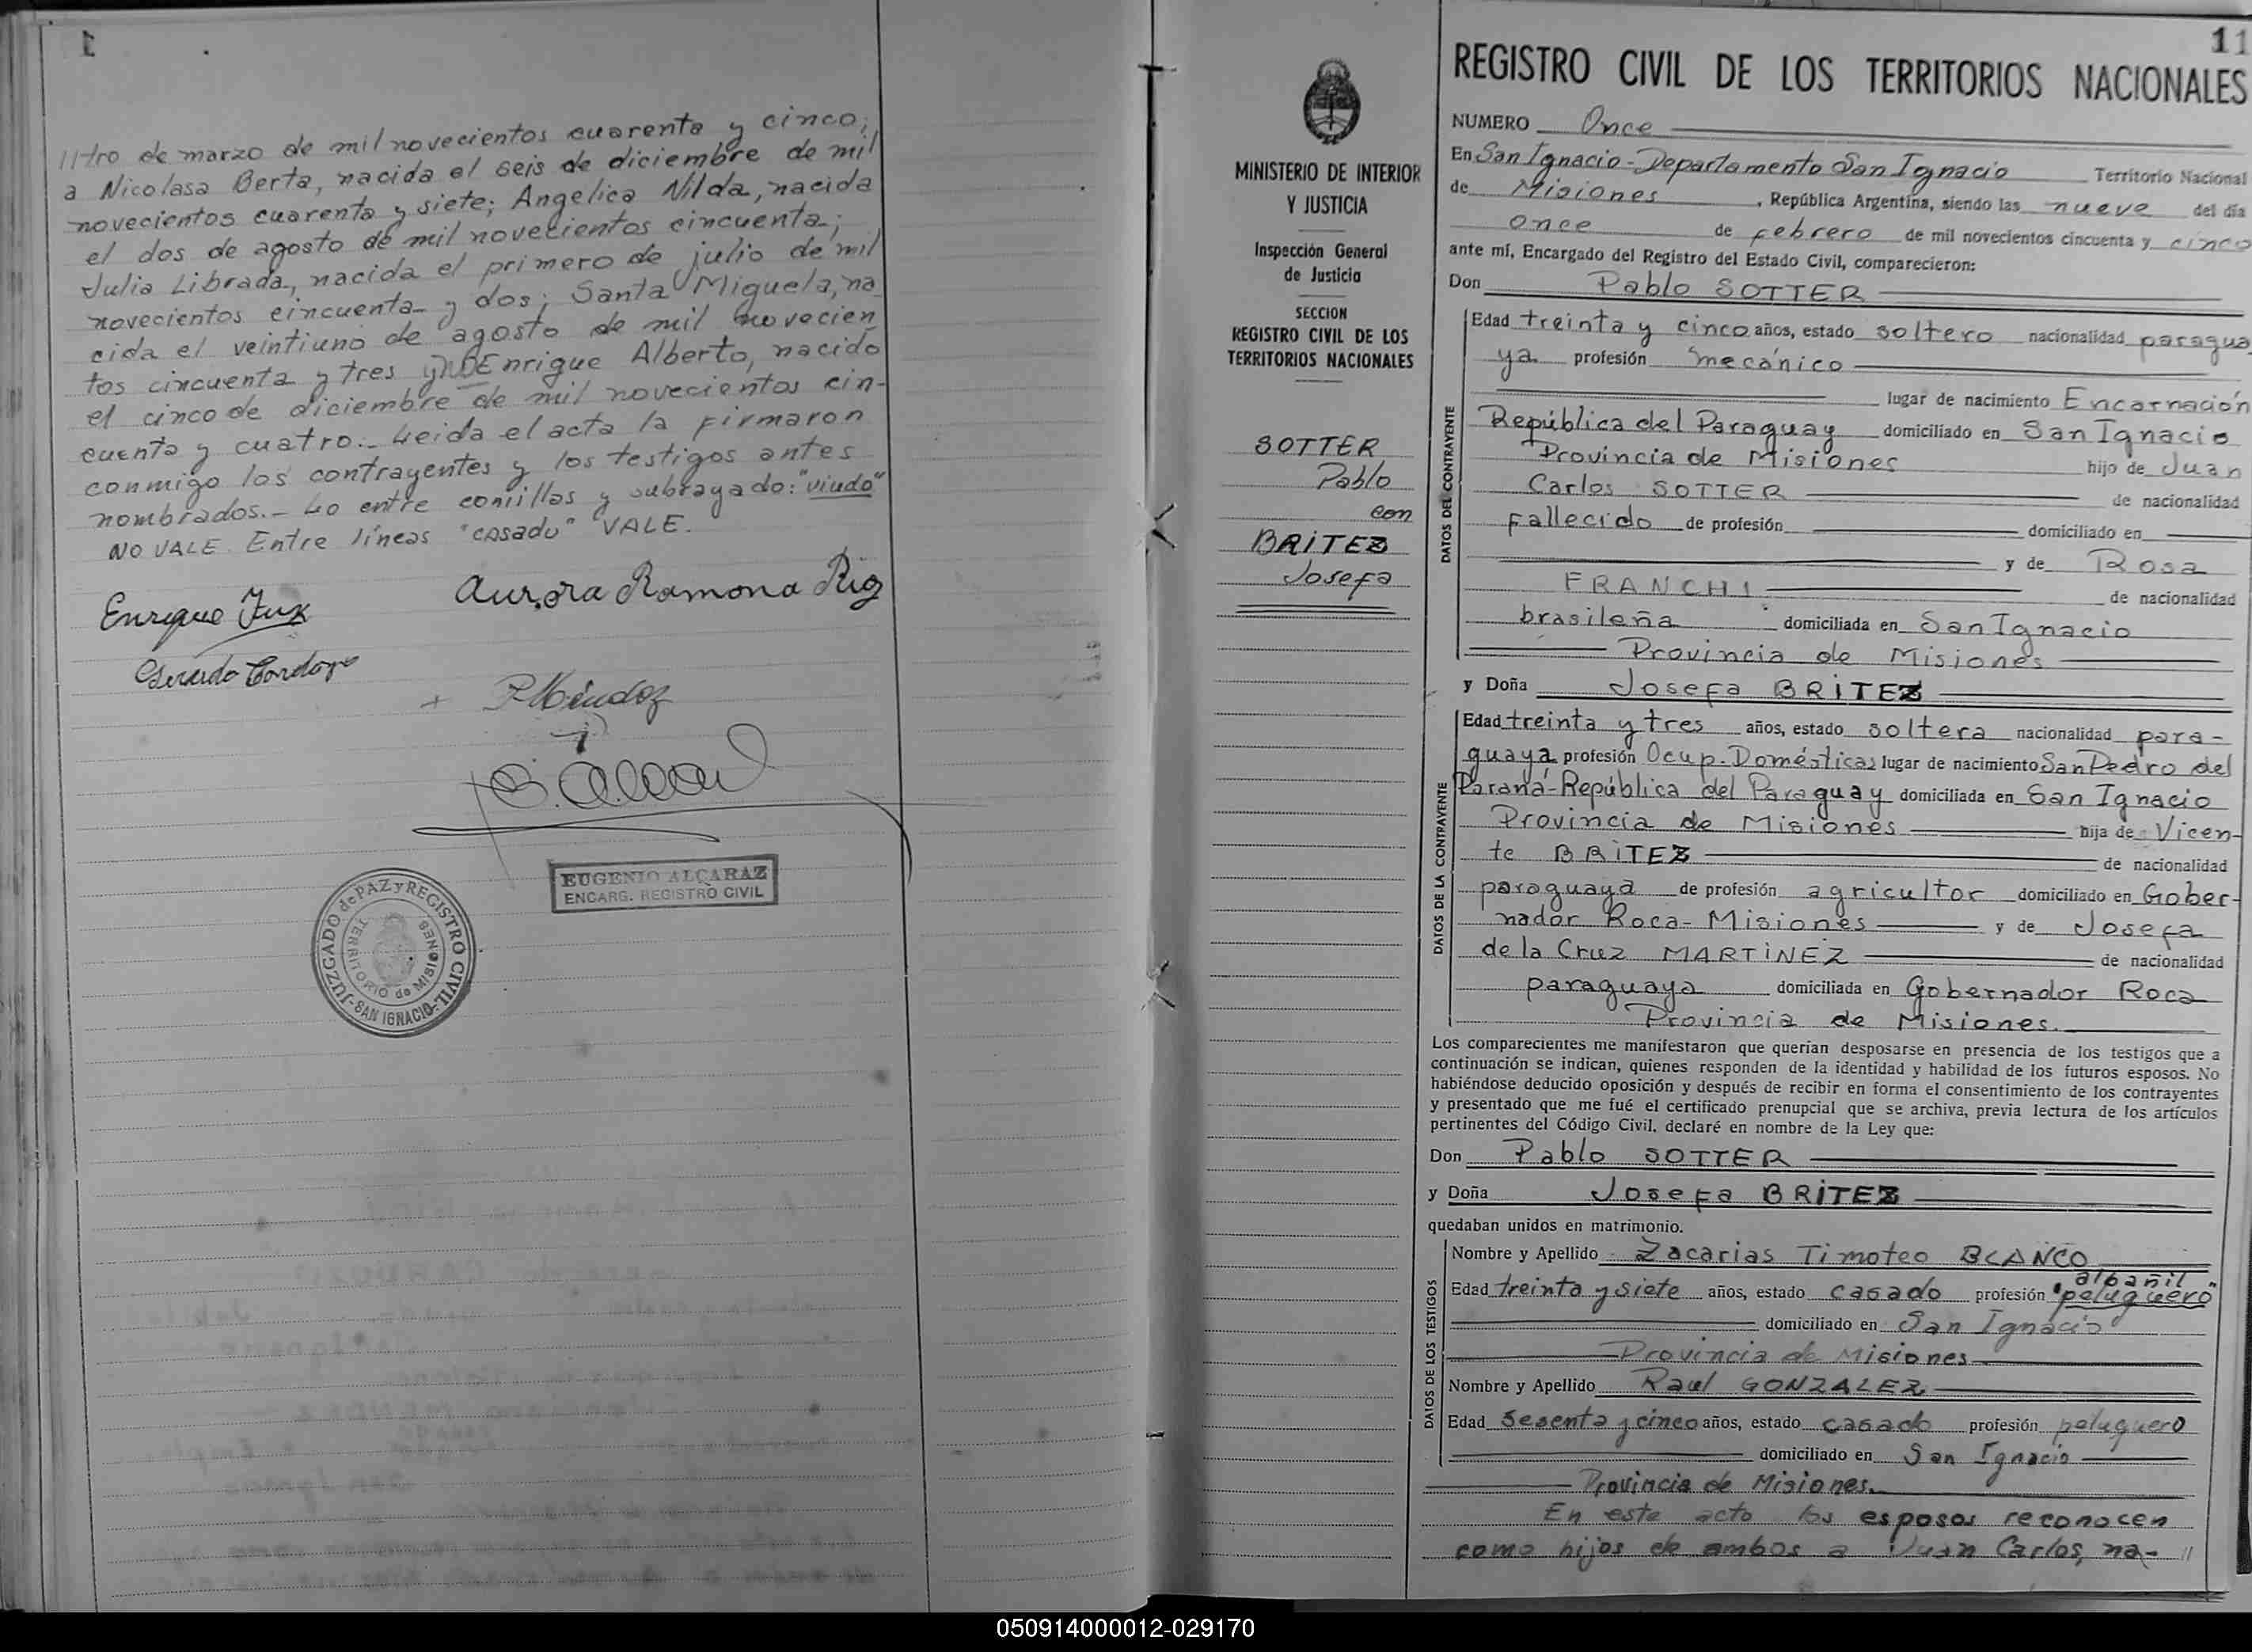 //tro de marzo de mil novecientos cuarenta y cinco;
a Nicolasa Berta, nacida el seis de diciembre de mil
novecientos cuarenta y siete; Angelica Nilda, nacida
el dos de agosto de mil novecientos cincuenta;
Julia Librada, nacida el primero de julio de mil
novecientos cincuenta y dos; Santa Miguela, na
cida el veintiuno de agosto de mil novecien
tos cincuenta y tres y Enrique Alberto, nacido
el cinco de diciembre de mil novecientos cin-
cuenta y cuatro.- Leida el acta la firmaron
conmigo los contrayentes y los testigos antes
nombrados.- Lo entre comillas y subrayado: "viudo"
NO VALE. Entre líneas "casado" VALE.
Enrique Fux
Aurora Ramona Rig
Gerardo Cardozo
EUGENIO ALCARAZ
ENCARG. REGISTRO CIVIL
JUZGADO de PAZ y REGISTRO CIVIL
SAN IGNACIO
TERRITORIO de MISIONES
11
MINISTERIO DE INTERIOR
Y JUSTICIA
Inspección General
de Justicia
SECCION
REGISTRO CIVIL DE LOS
TERRITORIOS NACIONALES
SOTTER
Pablo
con
BRITEZ
Josefa
REGISTRO CIVIL DE LOS TERRITORIOS NACIONALES
NUMERO Once
En San Ignacio - Departamento San Ignacio Territorio Nacional
de Misiones, República Argentina, siendo las nueve del día
once de febrero de mil novecientos cincuenta y cinco
ante mí, Encargado del Registro del Estado Civil, comparecieron:
Don Pablo SOTTER
DATOS DEL CONTRAYENTE
Edad treinta y cinco años, estado soltero nacionalidad paragua
ya profesión mecánico
lugar de nacimiento Encarnación
República del Paraguay domiciliado en San Ignacio
Provincia de Misiones hijo de Juan
Carlos SOTTER de nacionalidad
fallecido de profesión domiciliado en
y de Rosa
FRANCHI de nacionalidad
brasileña domiciliada en San Ignacio
Provincia de Misiones
y Doña Josefa BRITEZ
DATOS DE LA CONTRAYENTE
Edad treinta y tres años, estado soltera nacionalidad para-
guaya profesión Ocup. Domésticas lugar de nacimiento San Pedro del
Paraná - República del Paraguay domiciliada en San Ignacio
Provincia de Misiones hija de Vicen-
te BRITEZ de nacionalidad
paraguaya de profesión agricultor domiciliado en Gober-
nador Roca - Misiones y de Josefa
de la Cruz MARTINEZ de nacionalidad
paraguaya domiciliada en Gobernador Roca
Provincia de Misiones.
Los comparecientes me manifestaron que querían desposarse en presencia de los testigos que a
continuación se indican, quienes responden de la identidad y habilidad de los futuros esposos. No
habiéndose deducido oposición y después de recibir en forma el consentimiento de los contrayentes
y presentado que me fué el certificado prenupcial que se archiva, previa lectura de los artículos
pertinentes del Código Civil, declaré en nombre de la Ley que:
Don Pablo SOTTER
y Doña Josefa BRITEZ
quedaban unidos en matrimonio.
DATOS DE LOS TESTIGOS
Nombre y Apellido Zacarias Timoteo BLANCO
albañil
Edad treinta y siete años, estado casado profesión "peluquero"
domiciliado en San Ignacio
Provincia de Misiones
Nombre y Apellido Raul GONZALEZ
Edad sesenta y cinco años, estado casado profesión peluquero
domiciliado en San Ignacio
Provincia de Misiones.
En este acto los esposos reconocen
como hijos de ambos a Juan Carlos, na- //
050914000012-029170